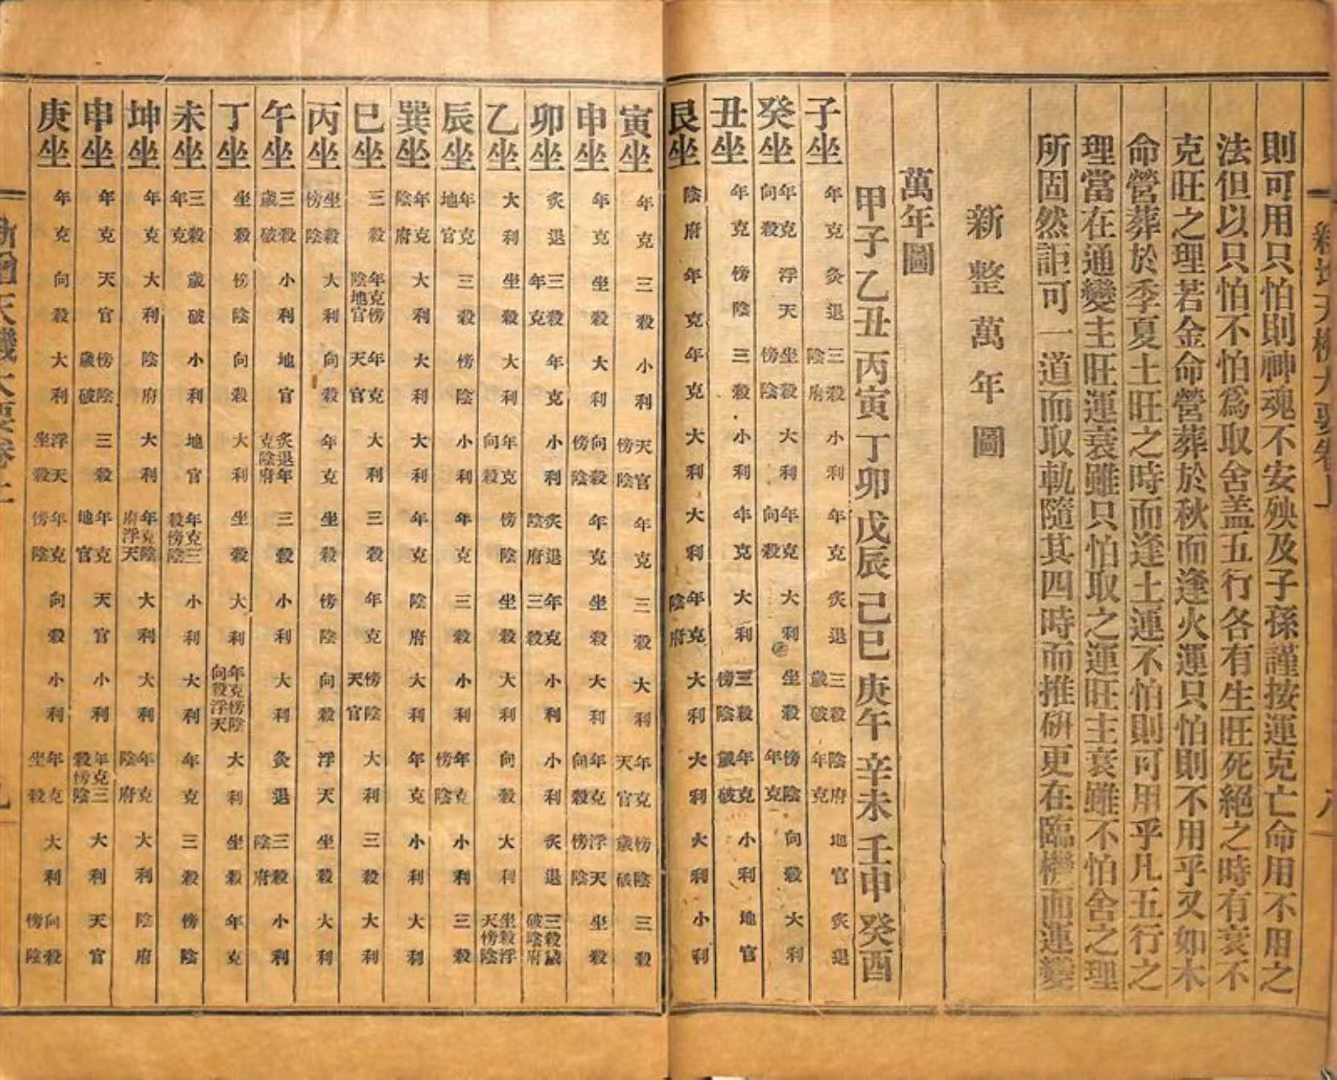 則可用只怕則神魂不安殃及子孫謹按運克亡命用不用之
法但以只怕不怕爲取舍盖五行各有生旺死絕之時有衰不
克旺之理若金命營葬於秋而逢火運只怕則不用乎又如木
命營葬於季夏土旺之時而逢土運不怕則可用乎凡五行之
理當在通變主旺運衰雖只怕取之運旺主衰雖不怕舍之理
所固然詎可一道而取軌隨其四時而推硏更在臨機而運變
新整萬年圖
萬年圖
甲子 乙丑 丙寅 丁卯 戊辰 己巳 庚午 辛未 壬申 癸酉
子坐 年克 灸退 三殺陰府 小利 年克 炙退 三殺歲破 陰府年克 地官 炙退
癸坐 年克向殺 浮天 坐殺傍陰 大利 年克向殺 大利 坐殺 傍陰年克 向殺 大利
丑坐 年克 傍陰 三殺 小利 年克 大利 三殺傍陰 年克歲破 小利 地官
艮坐 陰府 年克 年克 大利 大利 年克陰府 大利 大利 大利 小利
寅坐 年克 三殺 小利 天官傍陰 年克 三殺 大利 年克天官 傍陰歲破 三殺
甲坐 年克 坐殺 大利 向殺傍陰 年克 坐殺 大利 年克向殺 浮天傍陰 坐殺
卯坐 炙退 三殺年克 年克 小利 炙退陰府 年克三殺 大利 小利 炙退 三殺歲破陰府
乙坐 大利 坐殺 大利 年克向殺 傍陰 坐殺 大利 向殺 大利 坐殺浮天傍陰
辰坐 年克地官 三殺 傍陰 小利 年克 三殺 小利 年克傍陰 小利 三殺
巽坐 年克陰府 大利 大利 大利 年克 陰府 大利 年克 小利 大利
巳坐 三殺 年克傍陰地官 年克天官 大利 三殺 年克 傍陰天官 大利 三殺 大利
丙坐 坐殺傍陰 大利 向殺 年克 坐殺 傍陰 向殺 浮天 坐殺 大利
午坐 三殺歲破 小利 地官 炙退年克陰府 三殺 小利 大利 灸退 三殺陰府 小利
丁坐 坐殺 傍陰 向殺 大利 坐殺 大利 年克傍陰向殺浮天 大利 坐殺 年克
未坐 三殺年克 歲破 小利 地官 年克三殺傍陰 小利 大利 年克 三殺 傍陰
坤坐 年克 大利 陰府 大利 年克陰府浮天 大利 大利 年克陰府 大利 陰府
申坐 年克 天官 傍陰歲破 三殺 年克地官 天官 小利 年克三殺傍陰 大利 天官
庚坐 年克 向殺 大利 浮天坐殺 年克傍陰 向殺 小利 年克坐殺 大利 向殺傍陰
新增天機大要卷上 九